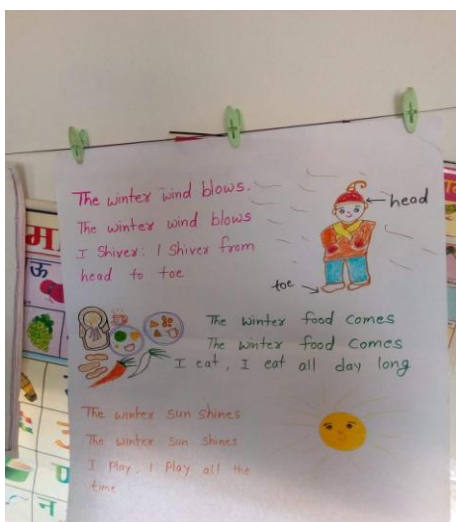 The winter wind blows.
The winter wind blows
I Shiver: I Shiver from
head to toe
head
toe
The winter food comes
The winter food comes
I eat, I eat all day long
The winter sun shines
The winter sun shines
I Play, I Play all the
time
म
ऊ
न